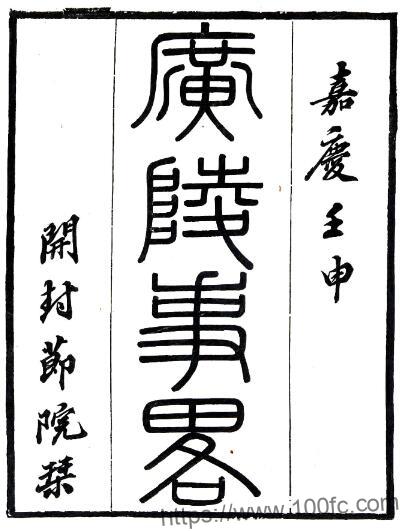 嘉慶壬申
廣陵事畧
開封節院栞
https://www.100fc.com